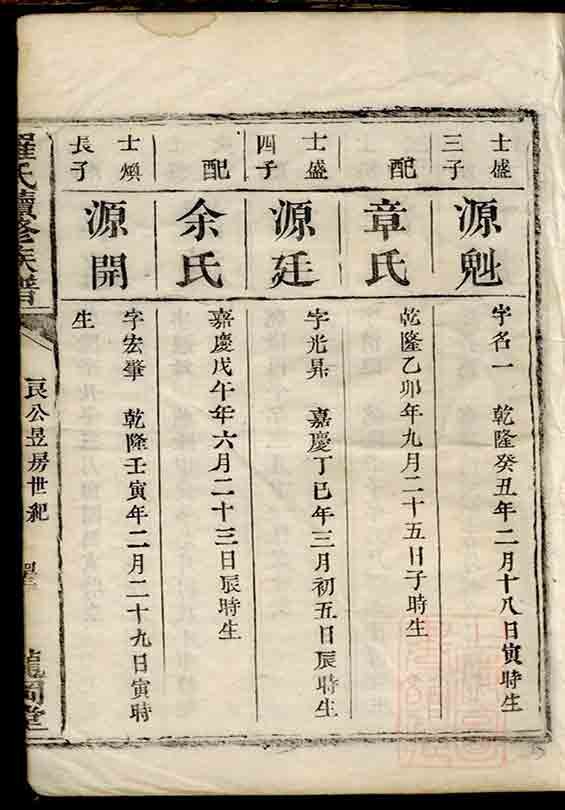 士盛
三子
源魁
字名一 乾隆癸丑年二月十八日寅時生
配
章氏
乾隆乙卯年九月二十五日子時生
士盛
四子
源廷
字光昇 嘉慶丁巳年三月初五日辰時生
配
余氏
嘉慶戊午年六月二十三日辰時生
士煥
長子
源開
字宏肇 乾隆壬寅年二月二十九日寅時
生
羅氏續修族譜
良公昱房世紀